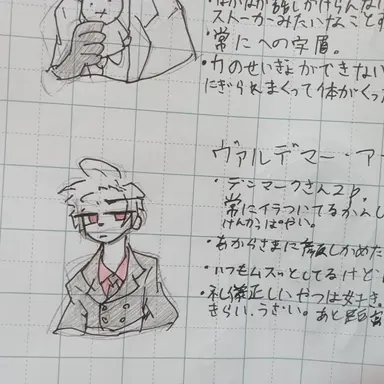 なかなか話しかけらんない
ストーカーみたいなことす
・常にへの字眉。
・力のせいぎょができない
にぎられまくって体がくっ
ヴァルデマー・ア
・デンマークさん2P。
常にイラついてるかんし
けんかっぱやい。
・あからさまに しかめた
・いつもムスッとしてるけど
・礼儀正しいやつは好き。
きらい。うざい。あと